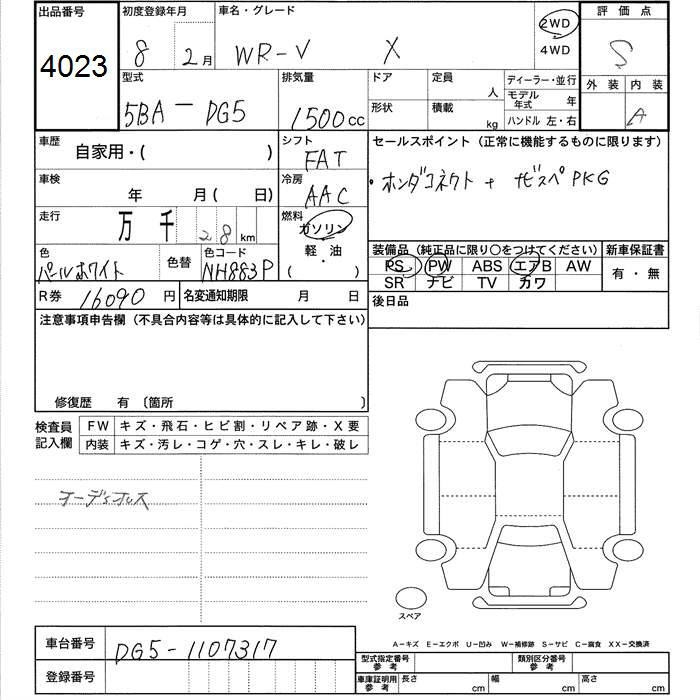 出品番号 初度登録年月 車名・グレード 評価点
4023 8 2月 WR-V X 2WD 4WD S
型式 排気量 ドア 定員 人 ディーラー・並行 外装 内装
モデル年式 年
5BA - DG5 1500cc 形状 積載 kg ハンドル 左・右 A
車歴 自家用・( ) シフト FAT セールスポイント (正常に機能するものに限ります)
車検 年 月( 日) 冷房 AAC ・ホンダコネクト + ナビスペPKG
走行 万 千 28 km 燃料 ガソリン 軽・油 ( )
色 パールホワイト 色替 色コード NH883P 装備品 (純正品に限り○をつけてください) 新車保証書
PS PW ABS エアB AW 有・無
SR ナビ TV カワ
R券 16090 円 名変通知期限 月 日 後日品
注意事項申告欄 (不具合内容等は具体的に記入して下さい)
修復歴 有 〔箇所
検査員記入欄 FW キズ・飛石・ヒビ割・リペア跡・X要
内装 キズ・汚レ・コゲ・穴・スレ・キレ・破レ
オーディオレス
スペア
車台番号 DG5-1107317
A-キズ E-エクボ U-凹み W-補修跡 S-サビ C-腐食 XX-交換済
登録番号
型式指定番号 参考 類別区分番号 参考
車庫証明用 参考 長さ cm 幅 cm 高さ cm